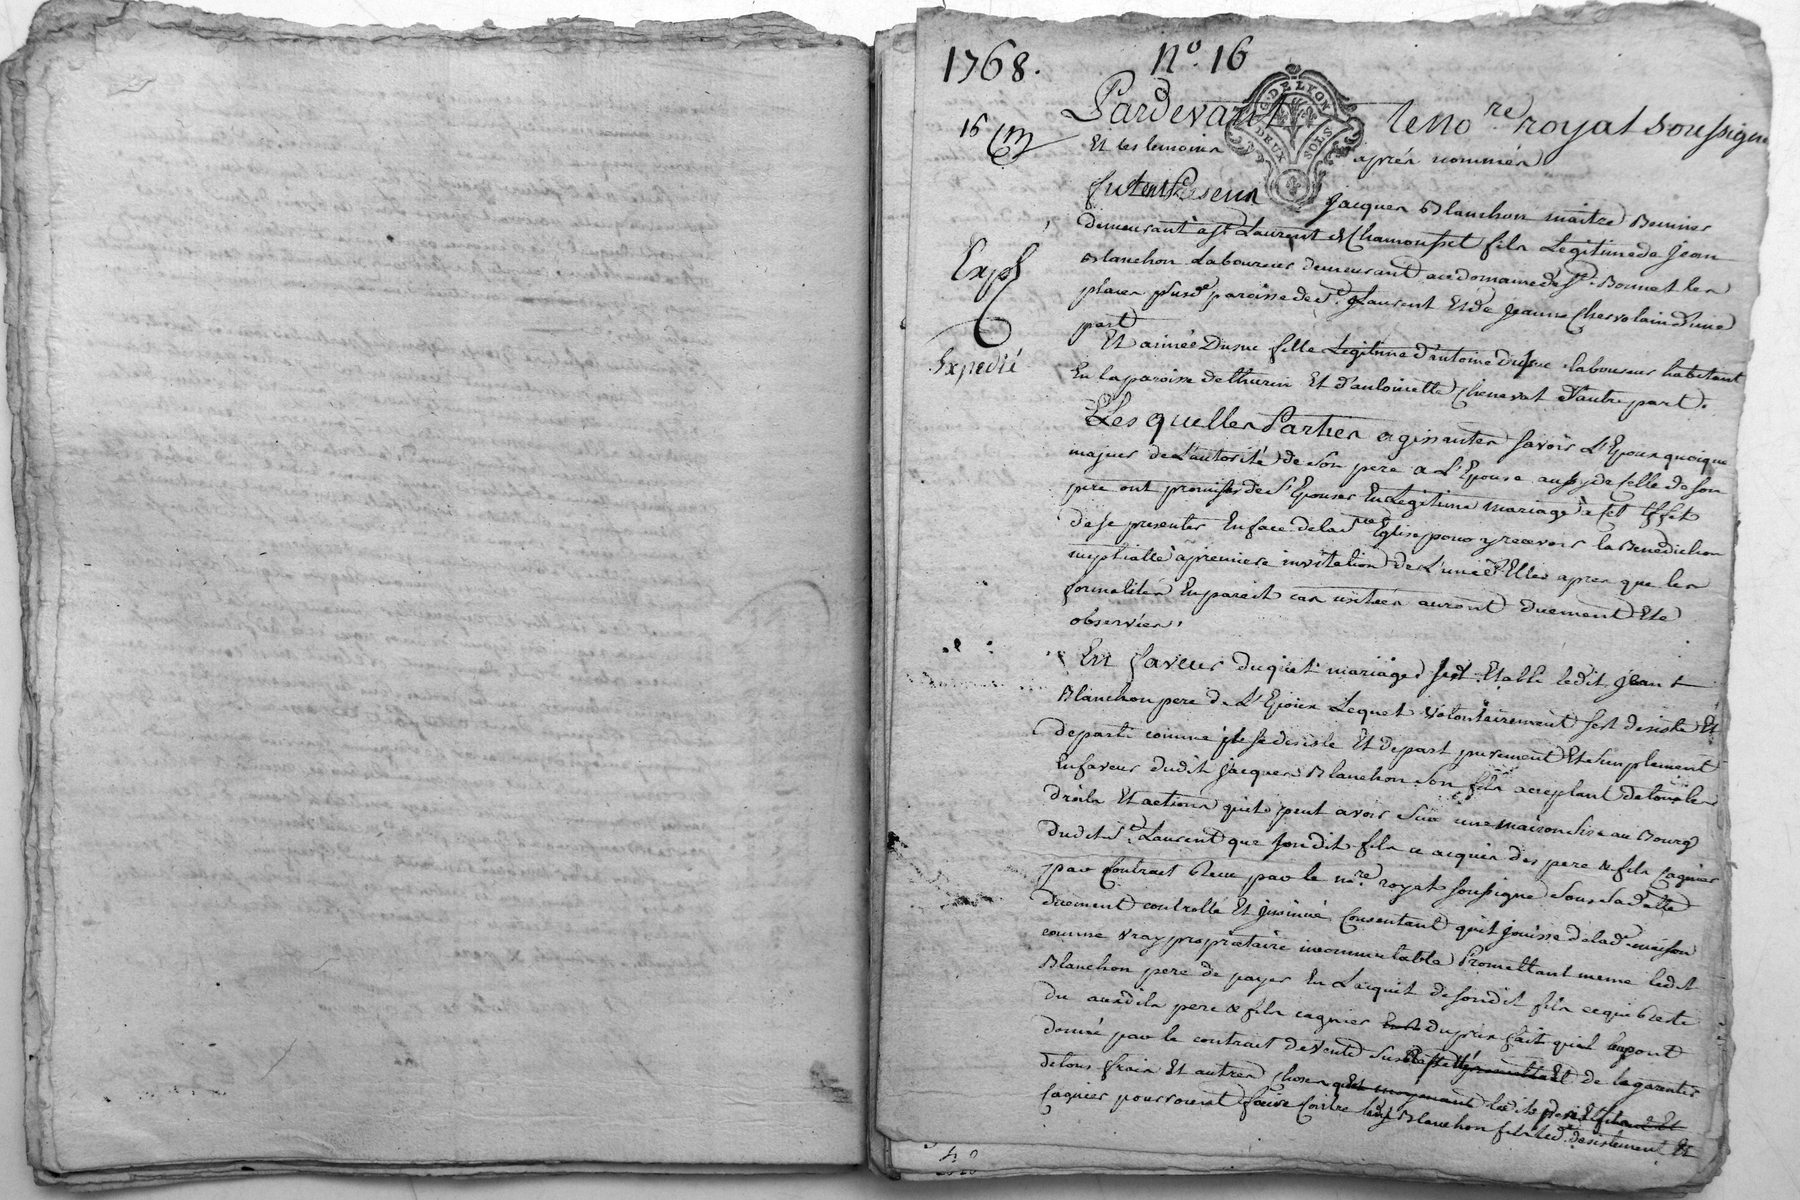 1768. No. 16
G. DE LYON
DEUX SOLS
Pardevant le no.re royal soussigné
16
Et les temoins après nommés
furent Presens Jacques Blanchon maitre
demeurant a St Laurent de Chamousset fils Legitime de Jean
Blanchon Laboureur demeurant au domaine de St. Bonnet les
places paroisse de St. Laurent Et de Jeanne d'une
part
Expé
Et aimée Dusuc fille Legitime d'antoine dusuc laboureur habitant
Expedié
En la paroisse de thurin Et d'antoinette Chenevat d'autre part.
Lesquelles Parties agissantes savoir L'Epoux quoique
majeur de L'autorité de Son pere & L'Epouse aussy de celle de son
pere ont promis de S'Epouser En Legitime mariage à cet Effet
de se presenter En face de la Ste Eglise pour y recevoir la Benediction
nuptialle a premiere invitation de L'un d'Elles apres que les
formalités En pareil cas usitées auront duement Eté
observées,
En faveur duquel mariage s'est Etabli ledit Jean
Blanchon pere de L'Epoux Lequel volontairement s'est desisté Et
departi comme il se desiste Et depart purement Et simplement
En faveur dudit Jacques Blanchon Son fils acceptant de tous les
droits Et actions qu'il peut avoir Sur une maison Sise au Bourg
dudit St. Laurent que sondit fils a acquis des pere & fils Cagnier
par Contract Reçu par le n.re royal soussigné Sous Sa datte
duement controllé Et insinué Consentant qu'il jouisse de lad.e maison
comme vray proprietaire incommutable Promettant meme ledit
Blanchon pere de payer En L'acquit de sondit fils ce qui Reste
du auxdits pere & fils cagnier du prix fait quil en ont
donné par le contract de vente Et de la garentir
de tous frais Et autres choses que les dits pere Et fils
Cagnier pourroient faire Contre led. Blanchon fils led. desistement Et